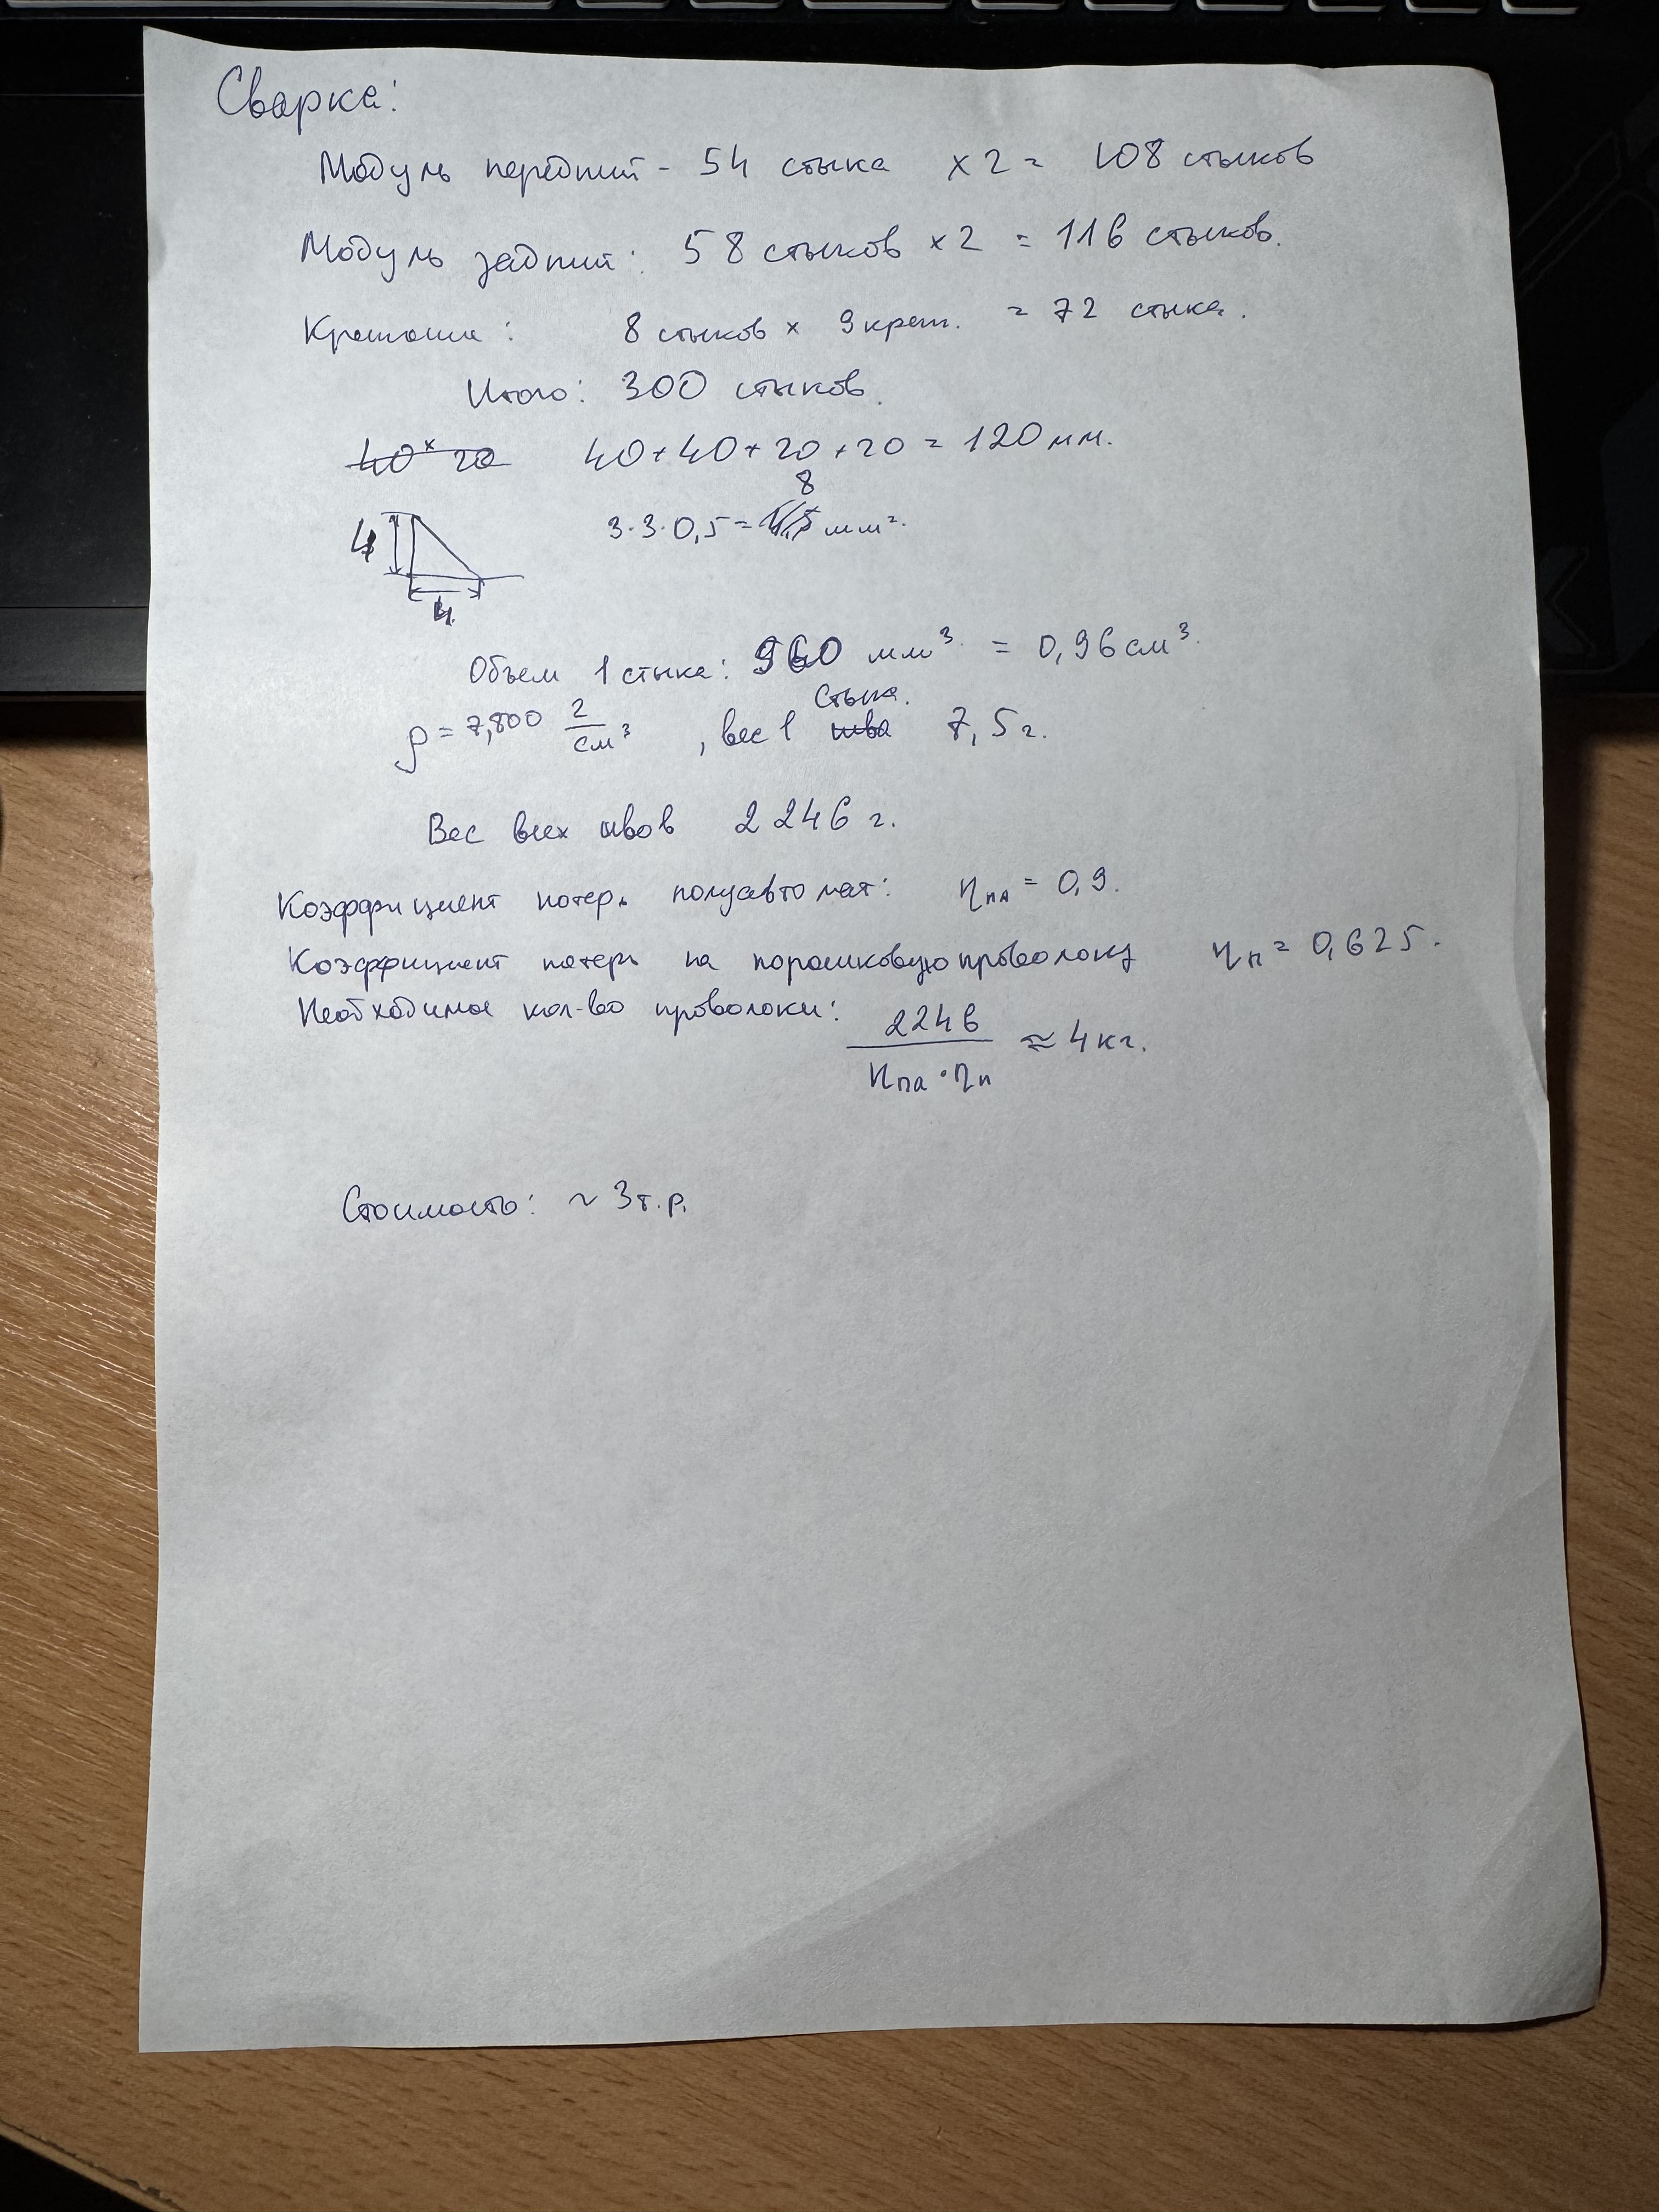 Сварка:
Модуль передний - 54 стыка х 2 = 108 стыков
Модуль задний: 58 стыков х 2 = 116 стыков.
8 стыков х 9 = 72 стыка.
Итого: 300 стыков.
40 х 20 40+40+20+20 = 120 мм.
8
3·3·0,5 = мм².
4
4
Объем 1 стыка: 960 мм³ = 0,96 см³.
стыка.
ρ = 7,800 г/см³, вес 1 шва 7,5 г.
Вес всех швов 2246 г.
Коэффициент потерь полуавтомат: ηпа = 0,9.
Коэффициент потерь на порошковую проволоку ηп = 0,625.
Необходимое кол-во проволоки: 2246 / ηпа · ηп ≈ 4 кг.
Стоимость: ~ 3 т.р.